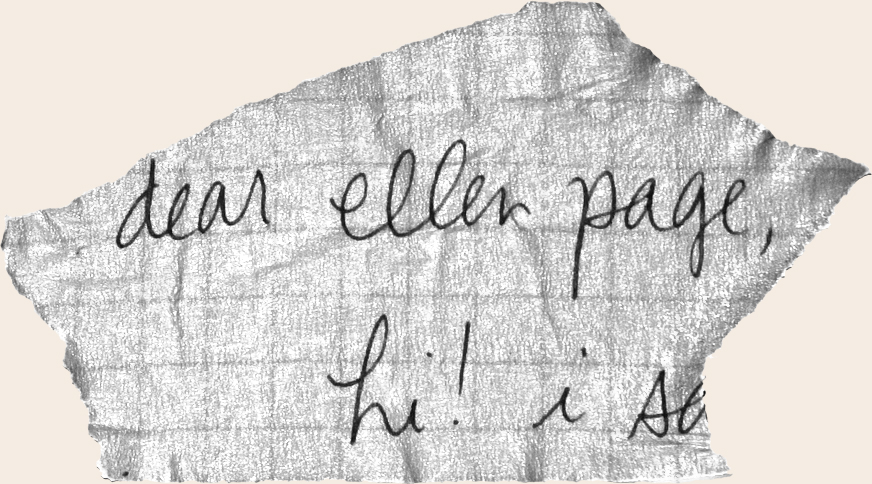 dear ellen page,
hi! i sa